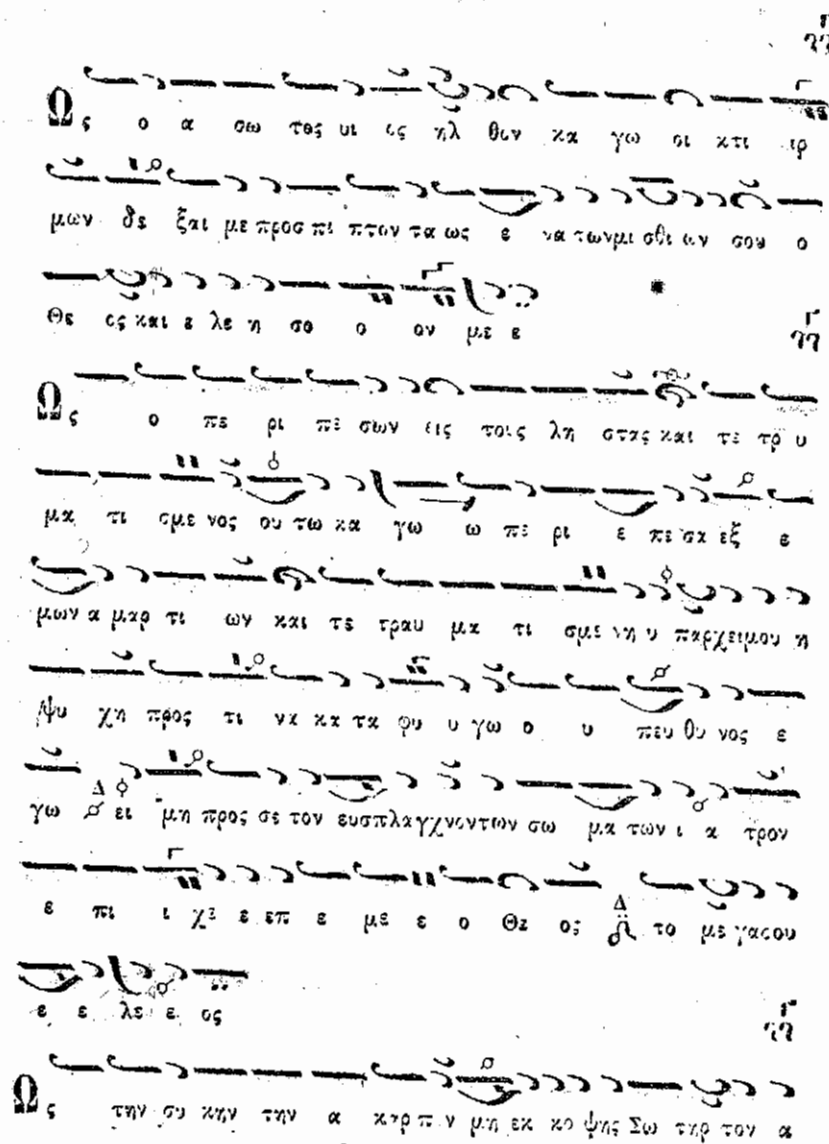 Ως ο α σω τος υι ος ηλ θον κα γω οι κτι ιρ
μων δε ξαι με προσ πι πτον τα ως ε να των μι σθι ων σου ο
Θε ος και ε λε η σο ο ον με ε
Ως ο πε ρι πε σων εις τοις λη στας και τε τρ υ
μα τι σμε νος ου τω κα γω ω πε ρι ε πε σα εξ ε
μων α μαρ τι ων και τε τραυ μα τι σμε νη υ παρχει μου η
ψυ χη προς τι να κα τα φυ υ γω ο υ πευ θυ νος ε
γω Δ ει μη προς σε τον ευσπλαγχνον των σω μα των ι α τρον
ε πι ι χε ε επ ε με ε ο Θε ος Δ το με γα σου
ε ε λε ε ος
Ως την συ κην την α καρ π ν μη εκ κο ψης Σω τηρ τον α